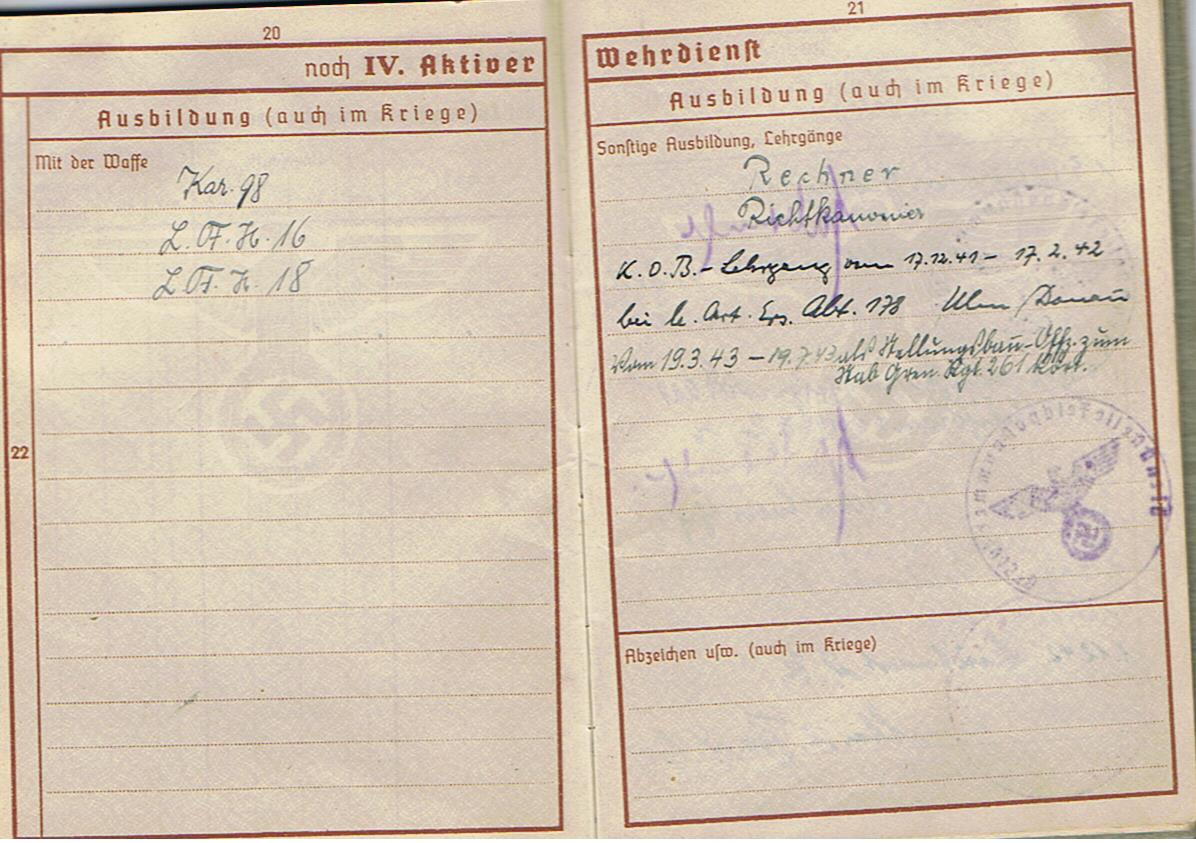 20
noch IV. Aktiver
Ausbildung (auch im Kriege)
Mit der Waffe
Kar. 98
L. F. H. 16
L. F. H. 18
22
21
Wehrdienst
Ausbildung (auch im Kriege)
Sonstige Ausbildung, Lehrgänge
Rechner
Richtkanonier
K.O.B. - Lehrgang vom 17.12.41 - 17.2.42
bei le. Art. Ers. Abt. 178 Ulm/Donau
Vom 19.3.43 - 19.7.43 als Stellungsbau-Offz. zum
Stab Gren. Rgt. 261 kdrt.
Abzeichen usw. (auch im Kriege)